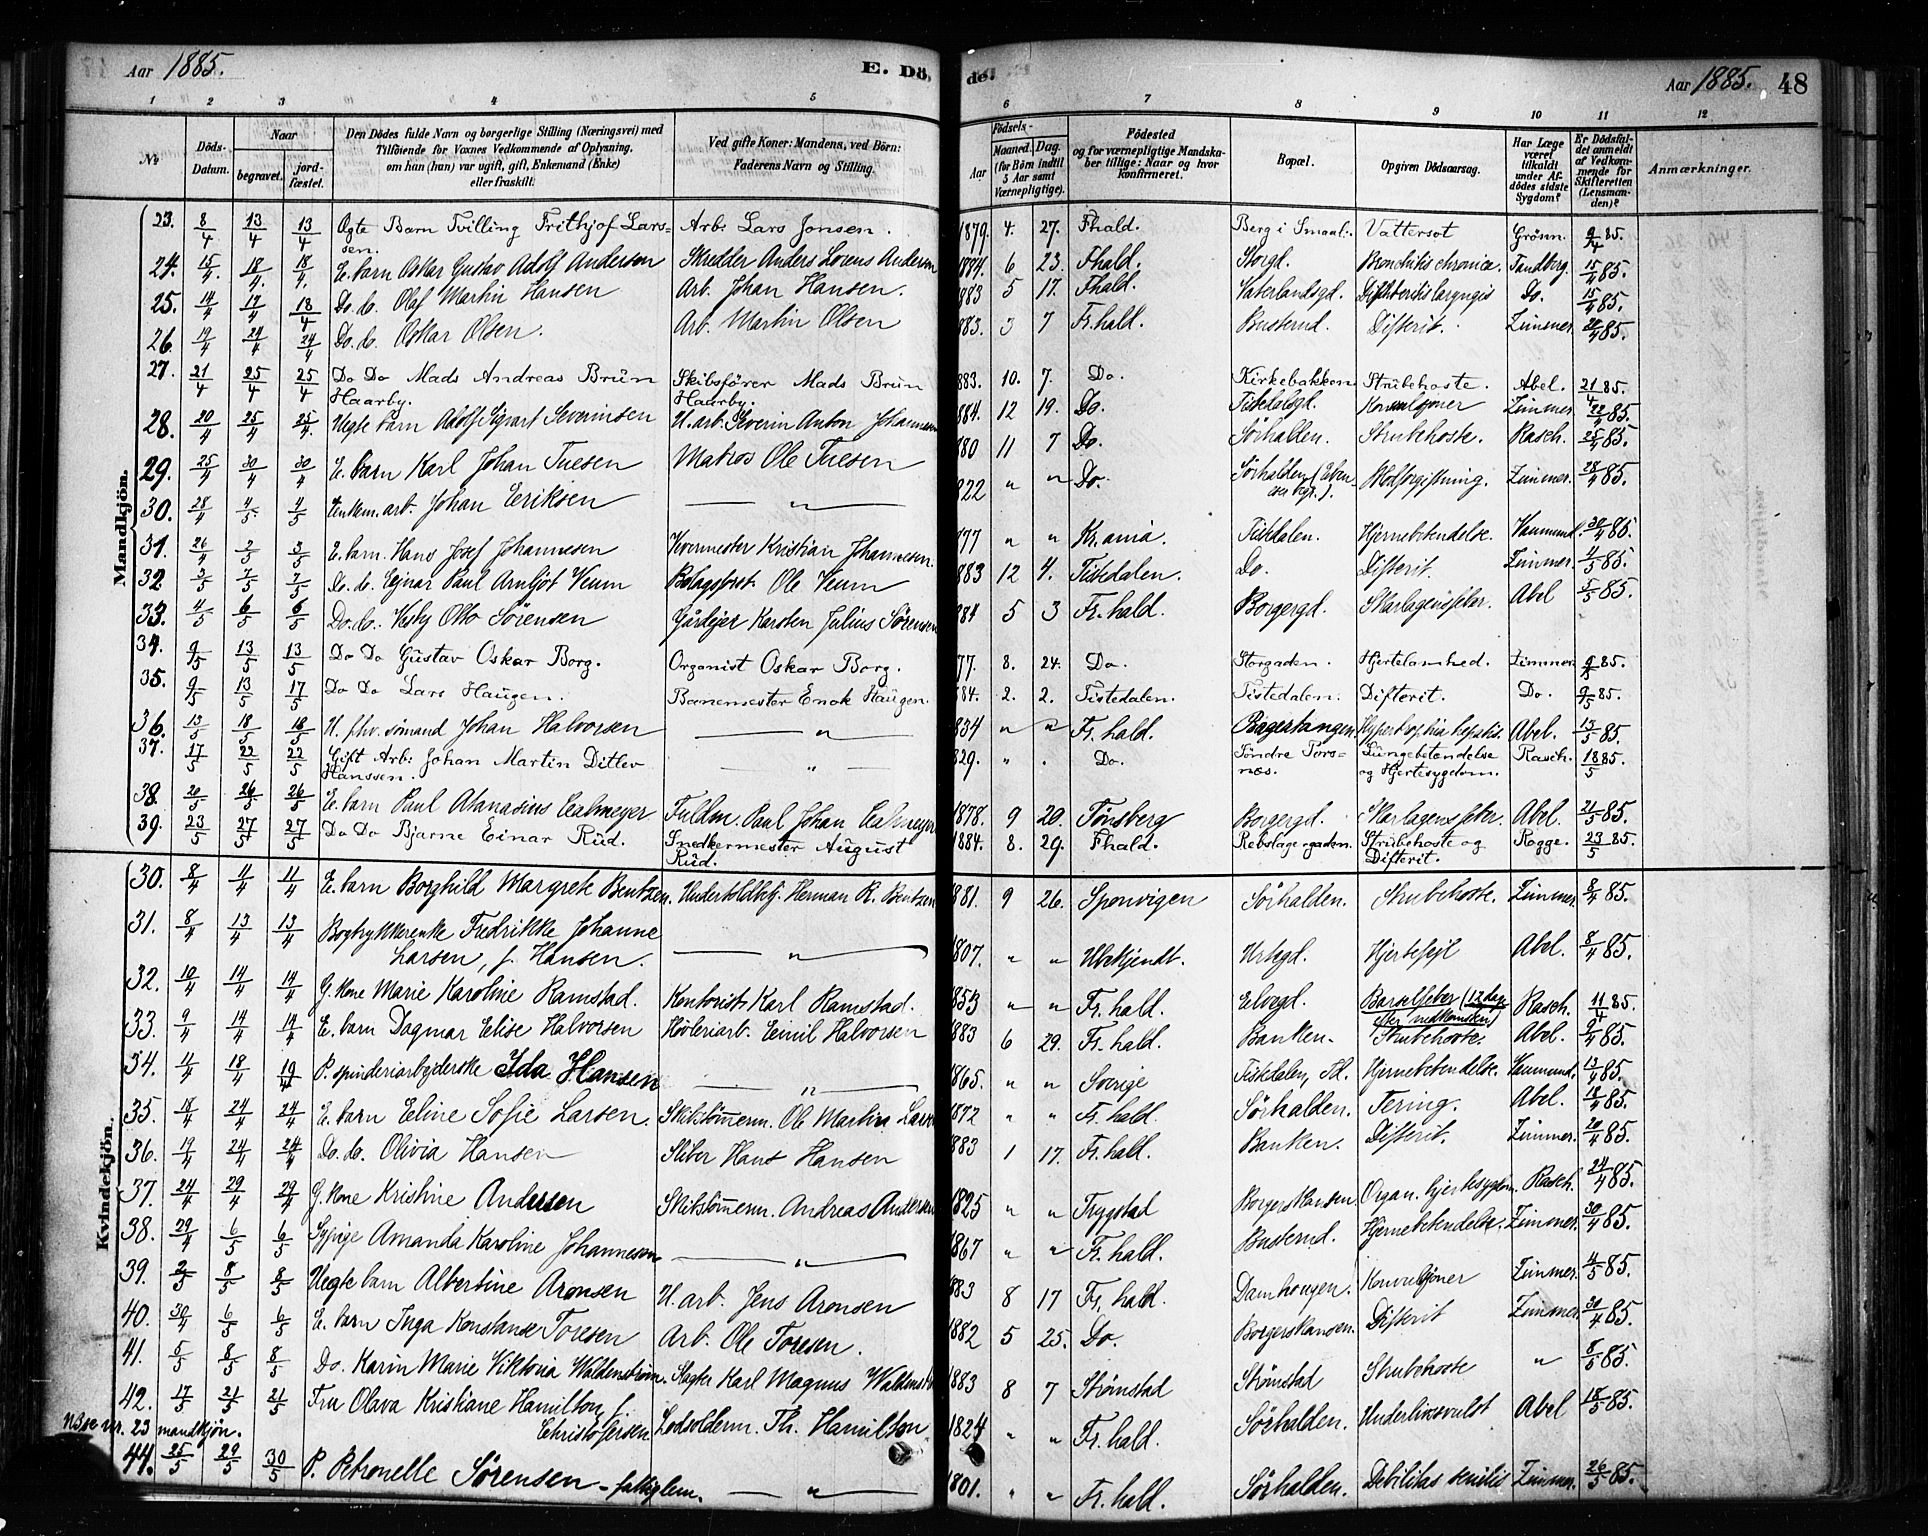 Aar 1885. E. Dö, de. Aar 1885. 48
1 2 3 4 5 6 7 8 9 10 11 12
No. Döds-Datum. Naar begravet. jordfæstet. Den Dödes fulde Navn og borgerlige Stilling (Næringsvei) med Tilföiende for Voxnes Vedkommende af Oplysning, om han (hun) var ugift, gift, Enkemand (Enke) eller fraskilt. Ved gifte Koner: Mandens, ved Börn: Faderens Navn og Stilling. Födsels- Aar Maaned. Dag. (for Börn indtil 5 Aar samt Værnepligtige). Födested og for værnepligtige Mandskaber tillige: Naar og hvor konfirmeret. Bopæl. Opgiven Dödsaarsag. Har Læge været tilkaldt under Afdödes sidste Sygdom? Er Dödsfaldet anmeldt af Vedkommende for Skifteretten (Lensmanden)? Anmærkninger.
Mandkjön.
23. 8/4 13/4 13/4 Ægte Barn Tvilling Frithjof Larssen. Arb. Lars Jonsen. 1879. 4. 27. Fhald. Berg i Smaal. Vattersot Grönn. 9/4 85.
24. 15/4 18/4 18/4 E. barn Oskar Gustav Adolf Andersen Skredder Anders Lorens Andersen 1884. 6 23. Fhald. Storgd. Bronchitis chronica. Tandberg 15/4 85.
25. 14/4 17/4 18/4 Do. do. Olaf Martin Hansen Arb. Johan Hansen. 883 5 17. Fhald. Vaterlandsgd. Difthteritis laryngis Do. 15/4 85.
26. 19/4 24/4 24/4 Do. do. Oskar Olsen. Arb. Martin Olsen 883. 3 7 Fr.hald. Busterud. Difterit. Zimmer. 20/4 85.
27. 21/4 25/4 25/4 Do Do Mads Andreas Brün Haarby. Skibsförer Mads Brün Haarby. 883. 10. 7. Do. Kirkebakken Strubehoste. Abel. 21/4 85.
28. 20/4 25/4 25/4 Uegte barn Adolf Sigvart Severinsen U. arb. Severin Anton Johannesen 884. 12 19. Do. Tistedalsgd. Konvulsjoner Zimmer. 22/4 85.
29. 25/4 30/4 30/4 E. barn Karl Johan Tuesen Matros Ole Tuesen 880 11 7 Do. Sörhalden. Strubehoste. Rasch. 25/4 85.
30. 28/4 4/5 4/5 Enkem. arb. Johan Eriksen — " — 822 " " Do. Sörhalden Blodforgiftning. Zimmer. 28/4 85.
31. 26/4 2/5 3/5 E. barn Hans Josef Johannesen Kvernmester Kristian Johannesen. 877 " " Kr.ania. Tistedalen. Hjernebetendelse. 30/4 85.
32 3/5 7/5 7/5 Do. do. Ejnar Paul Arnljot Veum Bolagsforst. Ole Veum 883 12 4. Tistedalen. Do. Difterit. Zimmer. 4/5 85.
33. 4/5 6/5 6/5 Do. do. Otto Sörensen Gårdejer Karsten Julius Sörensen 884 5 3 Fr. hald. Borgergd. Skarlagensfeber. Abel 5/5 85.
34. 9/5 13/5 13/5 Do Do Gustav Oskar Borg. Organist Oskar Borg. 77. 8. 24. Do. Storgaden. Hjertelamhed. Zimmer 9/5 85.
35. 9/5 13/5 17/5 Do Do Lars Haugen. Banemester Enok Haugen. 84. 2. 2. Tistedalen. Tistedalen. Difterit. Do. 9/5 85.
36. 13/5 18/5 18/5 U. fhv. sömand Johan Halvorsen — " — 834 " " Fr. hald. Hypertrophia hepatis. Abel. 13/5 85.
37. 17/5 22/5 22/5 Gift Arb. Johan Martin Ditlev Hanssen. — " — 829. " . Do. Söndre Torsnæs. Lungebetendelse og Hjertesygdom. Rasch. 18/5 85.
38. 20/5 26/5 26/5 E. barn Paul Atanasius Fuldm. Paul Johan 1878. 9 20. Tönsberg Borgergd. Skarlagensfeber. Abel. 21/5 85.
39. 23/5 27/5 27/5 Do Do Bjarne Einar Rüd. Snedkermester August Rüd. 1884. 8. 29. Fhald. Rebslagergaden. Strubehoste og Difterit. Rogge. 23/5 85.
Kvindekjön.
30. 8/4 11/4 11/4 E. barn Borghild Margrete Bentzen. Undertoldbetj. Herman R. Bentzen 1881. 9 26. Sponvigen Sörhalden. Strubehoste. Zimmer. 8/4 85.
31. 8/4 13/4 13/4 Bogtrykkerenke Fredrikke Johanne Larsen, f. Hansen. — " — 1807. " " Ubekjendt. Urtegd. Hjertefejl Abel. 8/4 85.
32. 10/4 14/4 14/4 G. kone Marie Karoline Ramstad. Kontorist Karl Ramstad. 1853 " " Fr. hald. Elvegd. Barselfeber (12 dage efter nedkomsten) Rasch. 11/4 85.
33. 9/4 14/4 14/4 E. barn Dagmar Elise Halvorsen Hövleriarb. Emil Halvorsen 1883 6 29. Fr. hald. Banken. Strubehoste. Abel. 9/4 85.
34. 11/4 18/4 19/4 P. spinderiarbejderske Ida Hansen — " — 1865. " " Sverige Tistedalen, Hjernebetendelse. 13/4 85.
35. 17/4 24/4 24/4 E. barn Eline Sofie Larsen. Skibstömmerm. Ole Martin Larsen 1872 " " Fr. hald. Sörhalden. Tering. Abel. 18/4 85.
36. 19/4 24/4 24/4 Do. do. Olivia Hansen Sliber Hans Hansen 1883 1 17. Fr. hald. Banken. Difterit. Zimmer. 20/4 85.
37. 24/4 29/4 29/4 G. kone Kristine Andersen Skibstömmerm. Andreas Andersen 1825 " " Trygstad Borgerskansen Organ. hjertesygdom. Rasch. 24/4 85.
38. 29/4 6/5 6/5 Sypige Amanda Karoline Johannesen — " — 1867 " " Fr. hald. Busterud. Hjernebetendelse. Zimmer. 30/4 85.
39. 2/5 8/5 8/5 Uegte barn Albertine Aronsen U. arb. Jens Aronsen 1883 8 17 Fr. hald. Damhougen. Konvulsjoner Zimmer. 4/5 85.
40. 30/4 6/5 6/5 E. barn Inga Konstanse Toresen Arb. Ole Toresen. 1882 5 25. Do. Borgerskansen. Difterit Zimmer. 30/4 85.
41. 5/5 8/5 8/5 Do. Karin Marie Viktoria Waldenström. Slagter Karl Magnus 1883 8 7 Strömstad Strömstad Strubehoste " 8/5 85.
42. 17/5 21/5 21/5 Fru Olava Kristiane Hamilton, f. Christofersen Lodsoldem. Th. Hamilton 1824 " " Fr. hald. Sörhalden. Underlivssvulst Abel 18/5 85.
NB se nr. 23 mandkjön.
44. 25/5 29/5 30/5 P. Petronelle Sörensen - fattiglem. — " — 1801. " " Fr. hald. Sörhalden. Debilitas senilis Zimmer. 26/5 85.